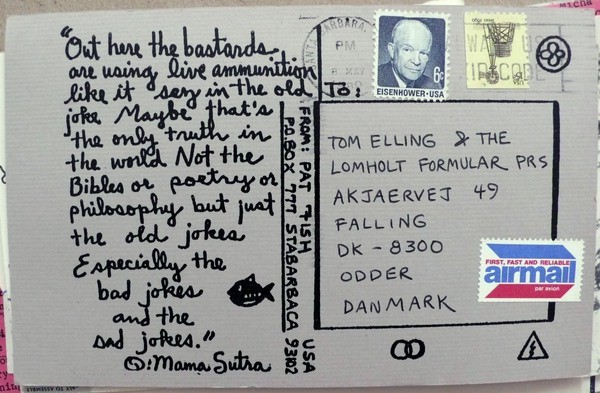 "Out here the bastards
are using live ammunition
like it sez in the old
joke Maybe that's
the only truth in
the world Not the
Bibles or poetry or
philosophy but just
the old jokes
Especially the
bad jokes
and the
sad jokes."
©: Mama Sutra
FROM: PAT FISH
P.O. BOX 777 STABARBACA 93102
USA
BARBARA,
PM
TO:
6c
EISENHOWER·USA
ZIP CODE
TOM ELLING & THE
LOMHOLT FORMULAR PRS
AKJAERVEJ 49
FALLING
DK - 8300
ODDER
DANMARK
FIRST, FAST AND RELIABLE
airmail
par avion